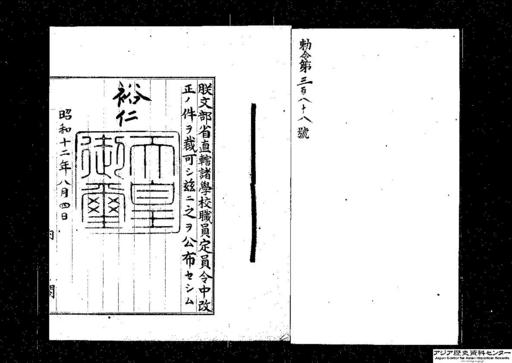 勅令第三百八十八號
朕文部省直轄諸學校職員定員令中改
正ノ件ヲ裁可シ茲ニ之ヲ公布セシム
裕仁
天皇
御璽
昭和十二年八月四日
内閣
アジア歴史資料センター
Japan Center for Asian Historical Records